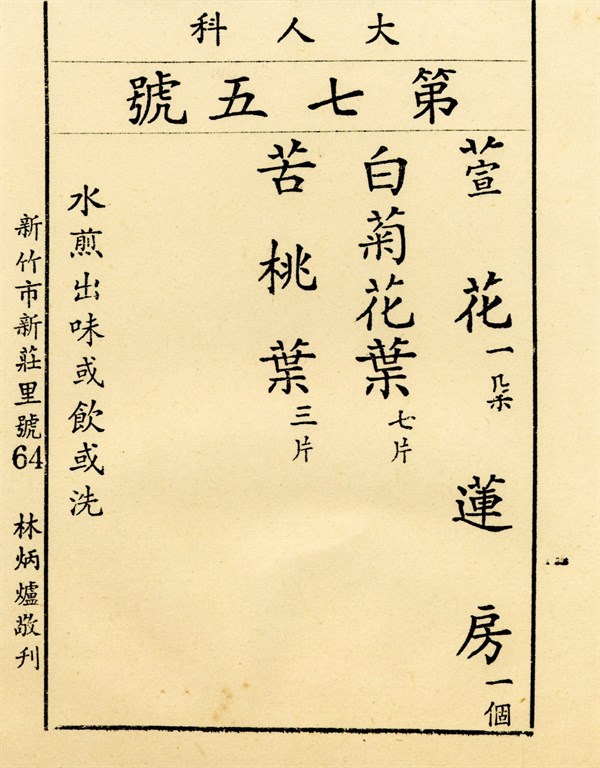 大人科
第七五號
萱花一朵 蓮房一個
白菊花葉七片
苦桃葉三片
水煎出味或飲或洗
新竹市新莊里號64 林炳爐敬刊